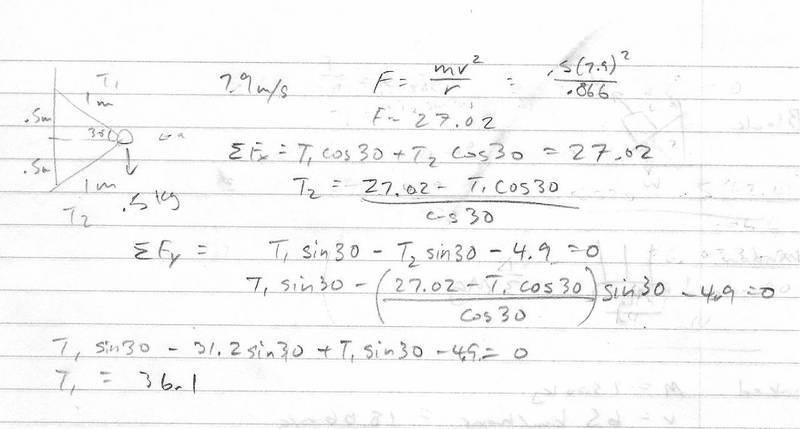 T₁
1m
.5m
30
.5m
1m
.5 Kg
T₂
7.9 m/s
F = mv²/r = .5(7.9)²/.866
F = 27.02
ΣFx = T₁ cos30 + T₂ cos30 = 27.02
T₂ = 27.02 - T₁ cos30 / cos30
ΣFy = T₁ sin30 - T₂ sin30 - 4.9 = 0
T₁ sin30 - (27.02 - T₁ cos30 / cos30) sin30 - 4.9 = 0
T₁ sin30 - 31.2 sin30 + T₁ sin30 - 4.9 = 0
T₁ = 36.1